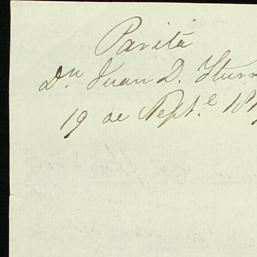 Parita
Dn Juan D. Iturr
19 de Sept.e 181